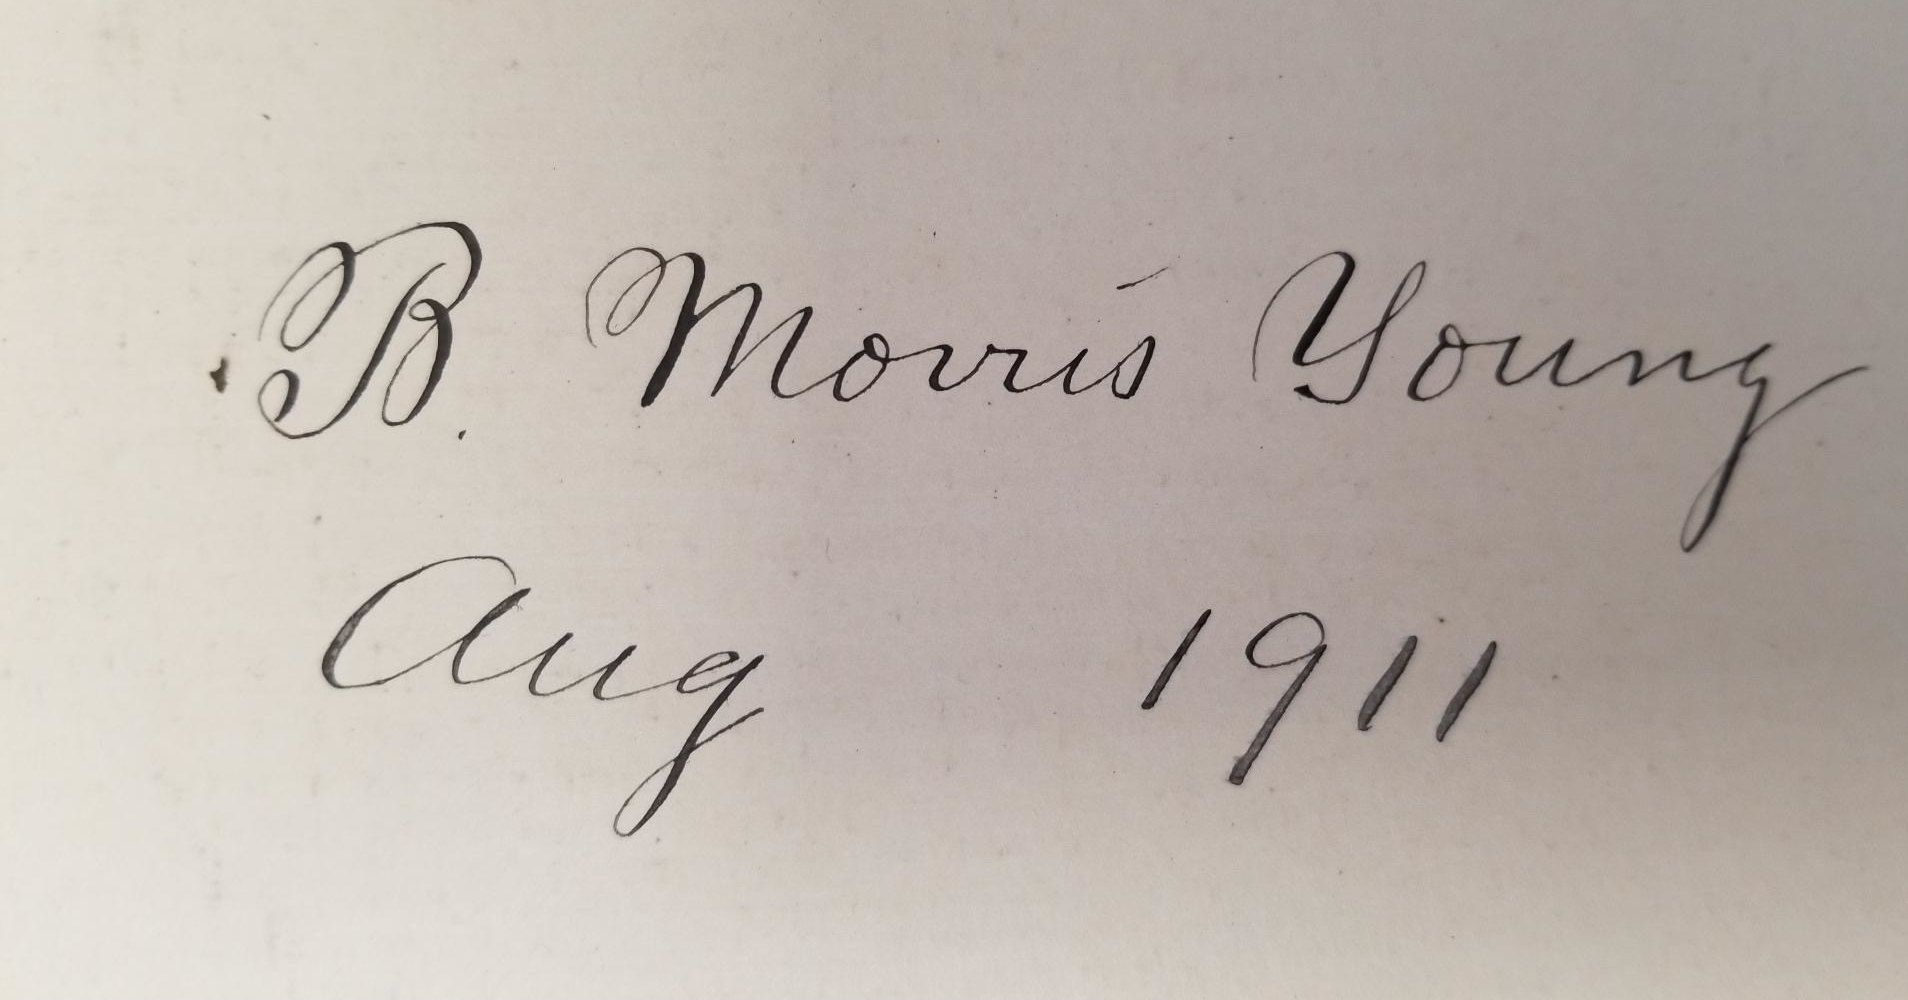 B. Morris Young
Aug 1911